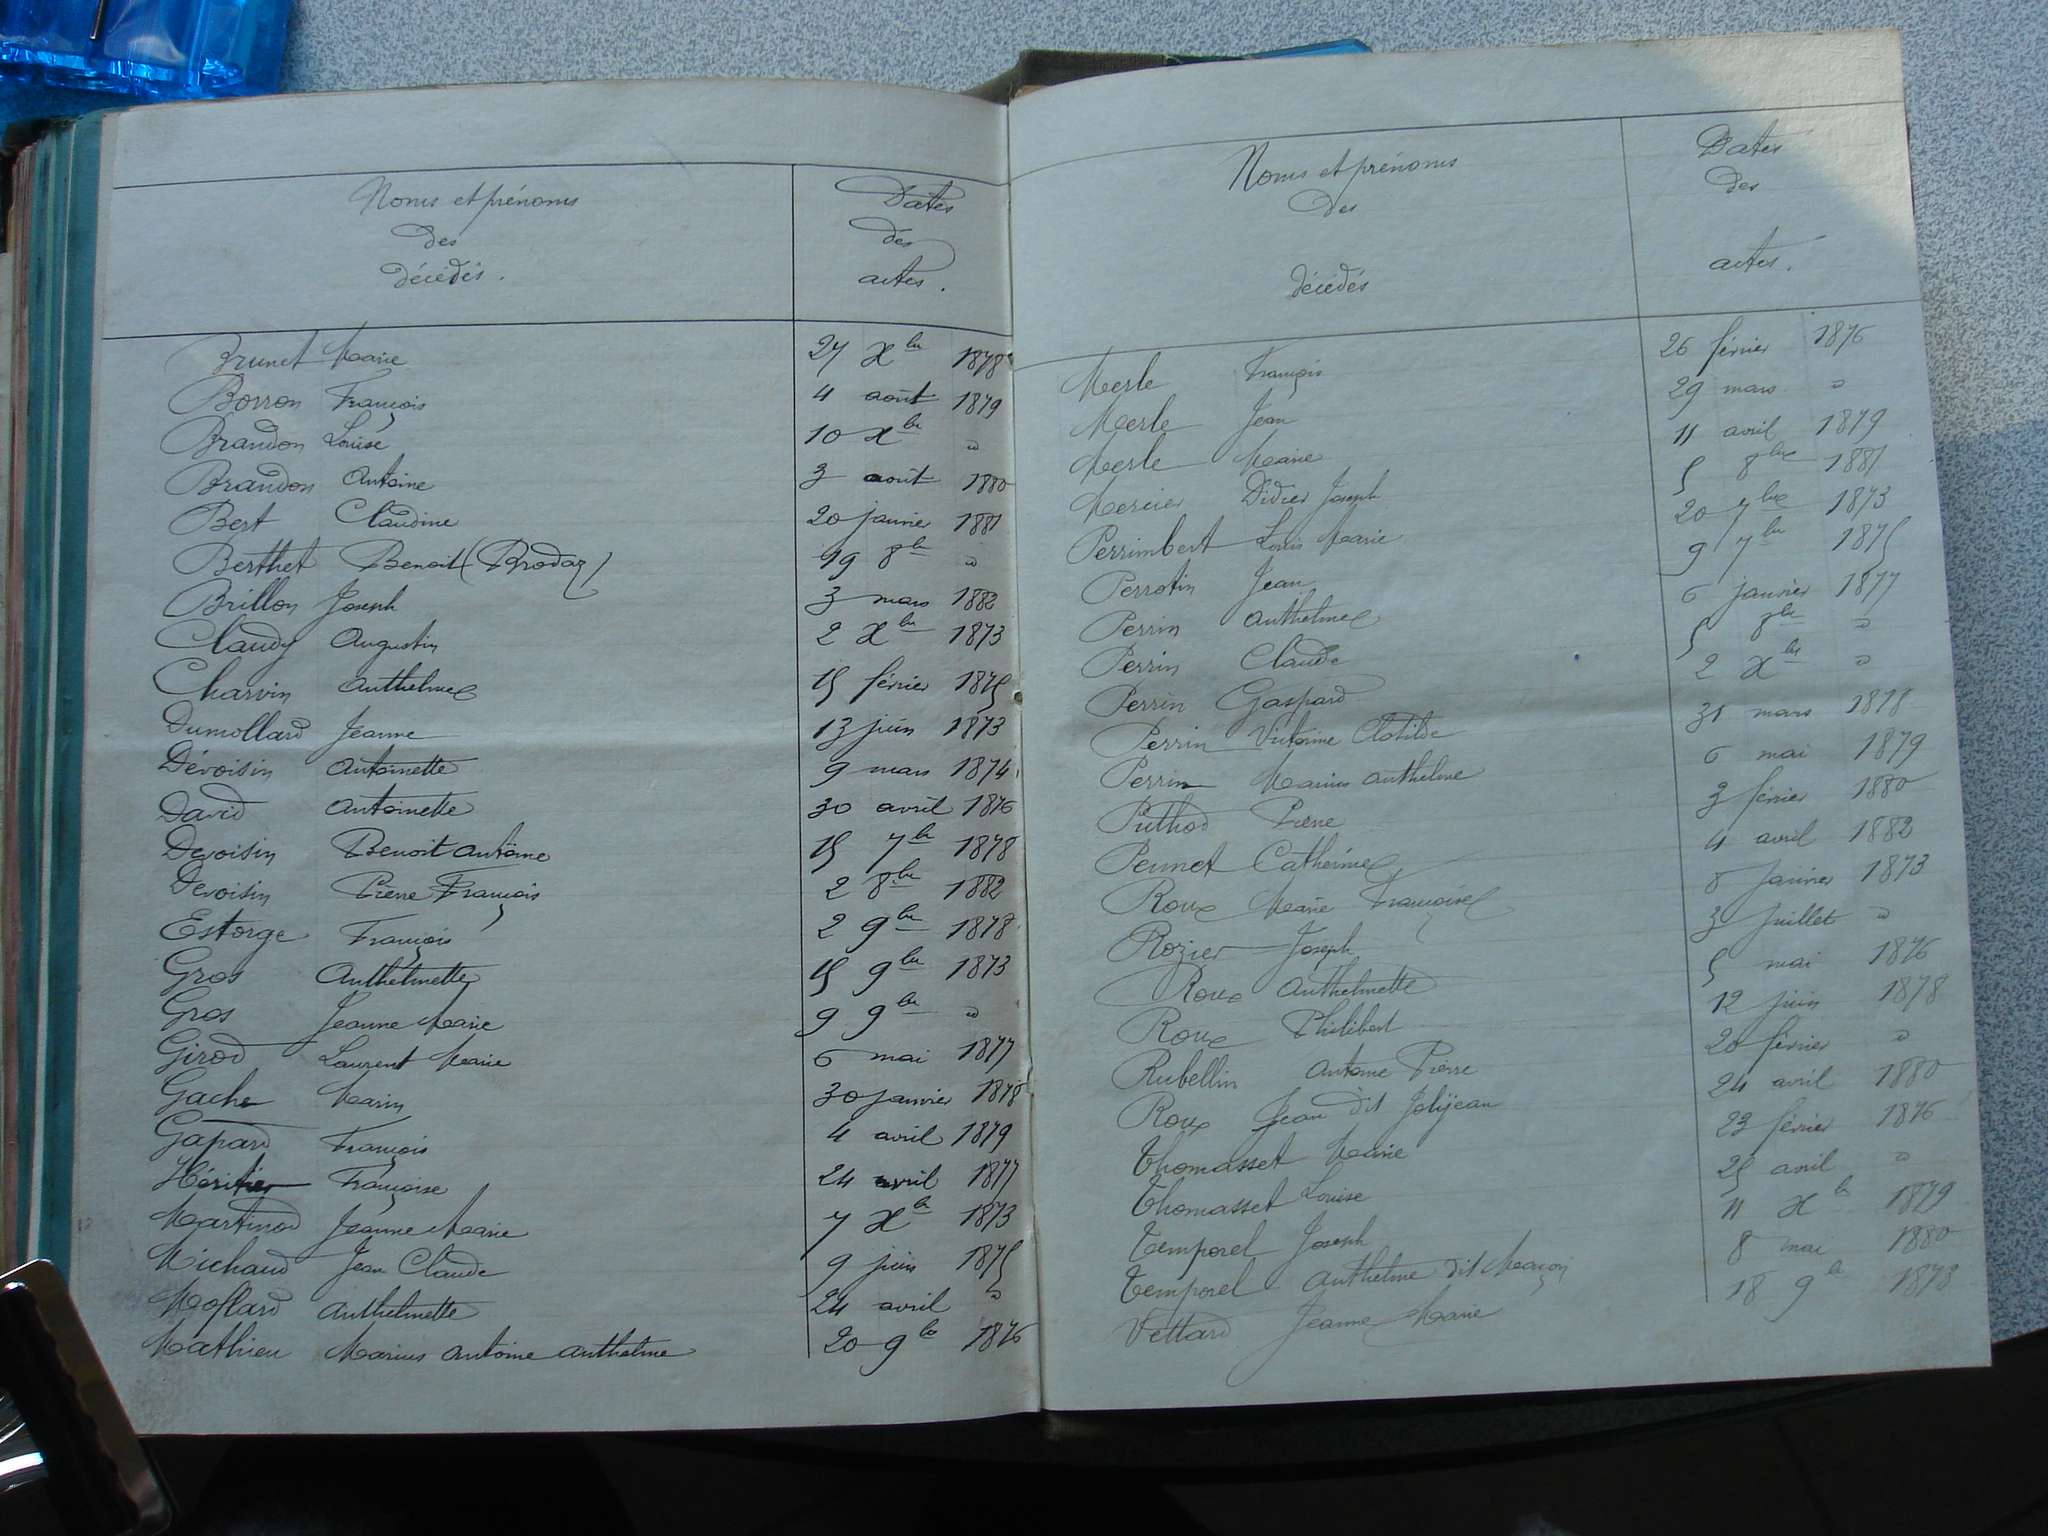 Noms et prénoms
des
décédés.
Dates
des
actes.
Brunet Marie 27 Xbre 1878
Borron François 4 août 1879
Brandon Louise 10 Xbre "
Brandon Antoine 3 août 1880
Bert Claudine 20 janvier 1881
Berthet Benoit (Brodaz) 19 8bre "
Brillon Joseph 3 mars 1882
Claudy Augustin 2 Xbre 1873
Charvin Anthelme 15 février 1875
Dumollard Jeanne 13 juin 1873
Dévoisin Antoinette 9 mars 1874
David Antoinette 30 avril 1876
Devoisin Benoit Antoine 15 7bre 1878
Devoisin Pierre François 2 8bre 1882
Estorge François 2 9bre 1878
Gros Anthelmette 15 9bre 1873
Gros Jeanne Marie 9 9bre "
Girod Laurent Marie 6 mai 1877
Gache Marin 30 janvier 1878
Gapard François 4 avril 1879
Héritier Françoise 24 avril 1877
Martinod Jeanne Marie 7 Xbre 1873
Michaud Jean Claude 9 juin 1875
Moflard Anthelmette 24 avril "
Mathieu Marius Antoine Anthelme 20 9bre 1876
Noms et prénoms
des
décédés
Dates
des
actes.
Merle François 26 février 1876
Merle Jean 29 mars "
Merle Marie 11 avril 1879
Mercier Didier Joseph 5 8bre 1881
Perrimbert Louis Marie 20 7bre 1873
Perrotin Jean 9 7bre 1875
Perrin Anthelme 6 janvier 1877
Perrin Claude 5 8bre "
Perrin Gaspard 2 Xbre "
Perrin Victorine Clotilde 31 mars 1878
Perrin Marius Anthelme 6 mai 1879
Puthod Pierre 3 février 1880
Peunet Catherine 4 avril 1882
Roux Marie Françoise 8 Janvier 1873
Rozier Joseph 3 Juillet "
Roux Anthelmette 5 mai 1876
Roux Philibert 12 juin 1878
Rubellin Antoine Pierre 20 février "
Roux Jean dit Jolijean 24 avril 1880
Thomasset Marie 23 février 1876
Thomasset Louise 25 avril "
Temporel Joseph 11 Xbre 1879
Temporel Anthelme dit Maçon 8 mai 1880
Vettard Jeanne Marie 18 9bre 1873